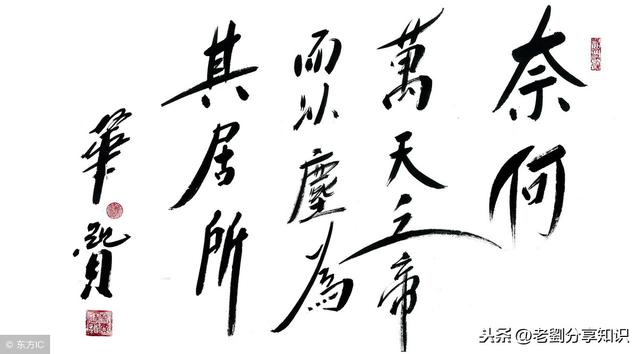 奈何
萬天之帝
而以塵為
其居所
© 东方IC
头条@老劉分享知识